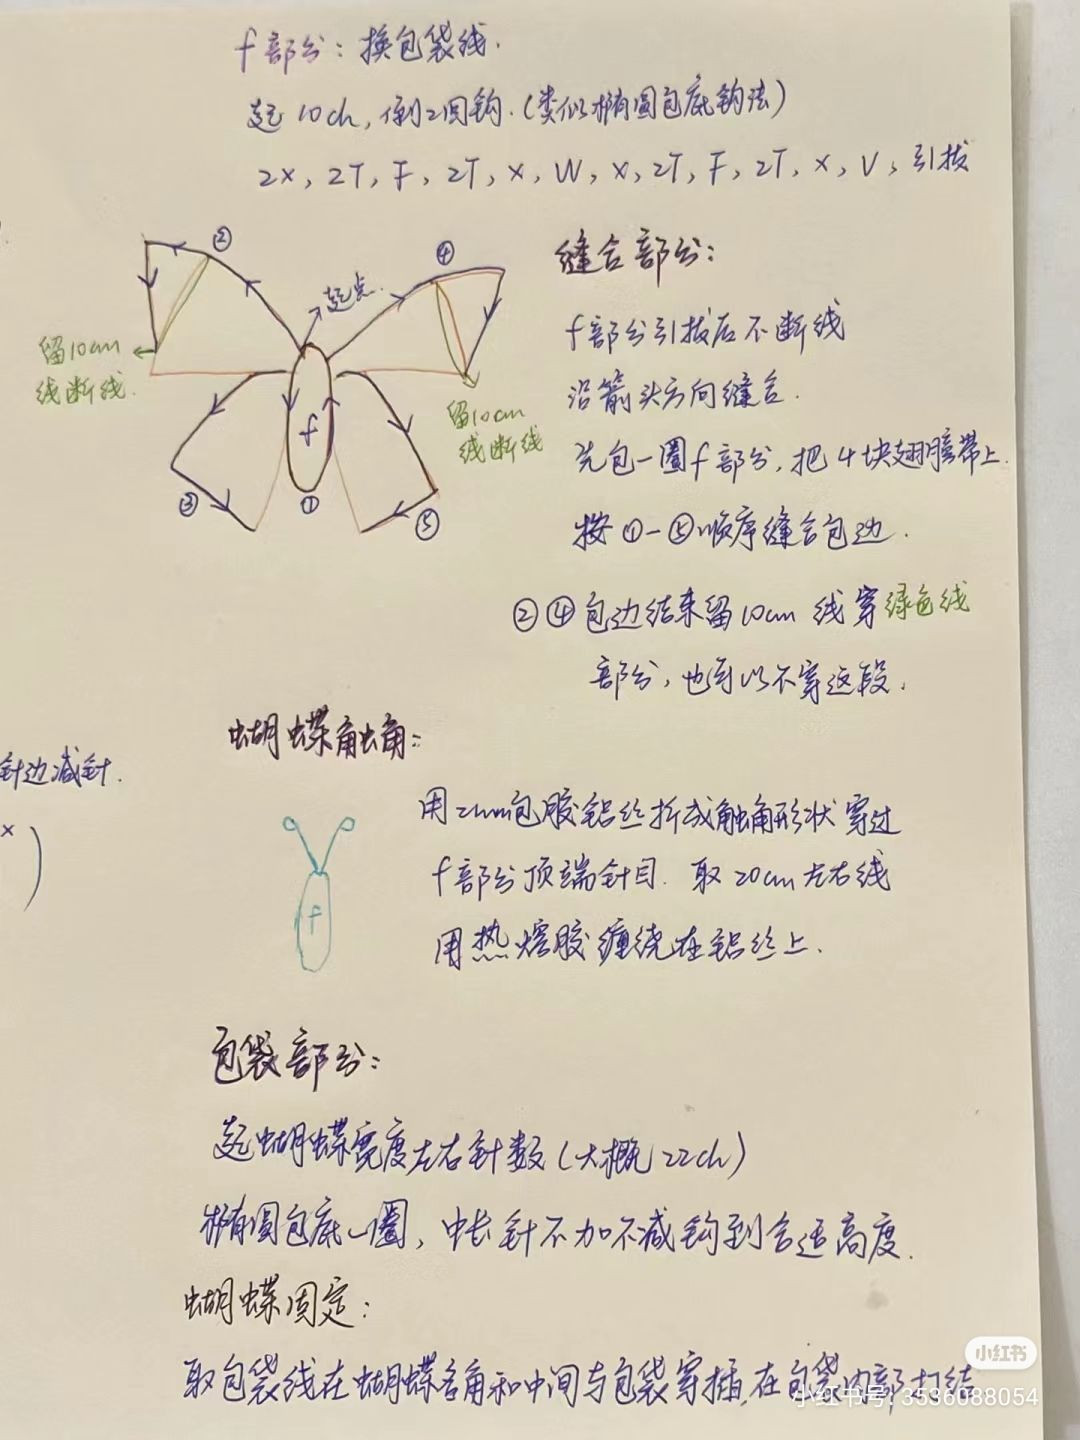 f部分：换包袋线.
起10ch，倒2回钩.（类似椭圆包底钩法）
2X，2T，F，2T，X，W，X，2T，F，2T，X，V，引拔
②
④
起点.
留10cm
线断线.
f
留10cm
线断线
③
①
⑤
缝合部分：
f部分引拔后不断线
沿箭头方向缝合.
先包一圈f部分，把4块翅膀带上.
按①-⑤顺序缝合包边.
②④包边结束留10cm线穿绿色线
部分，也可以不穿这段.
针边减针.
x )
蝴蝶触角：
用2mm包胶铝丝折成触角形状穿过
f部分顶端针目.取20cm左右线
用热熔胶缠绕在铝丝上.
f
包袋部分：
起蝴蝶宽度左右针数（大概22ch）
椭圆包底一圈，中长针不加不减钩到合适高度.
蝴蝶固定：
取包袋线在蝴蝶各角和中间与包袋穿插,在包袋内部打结
小红书
小红书号:3536088054